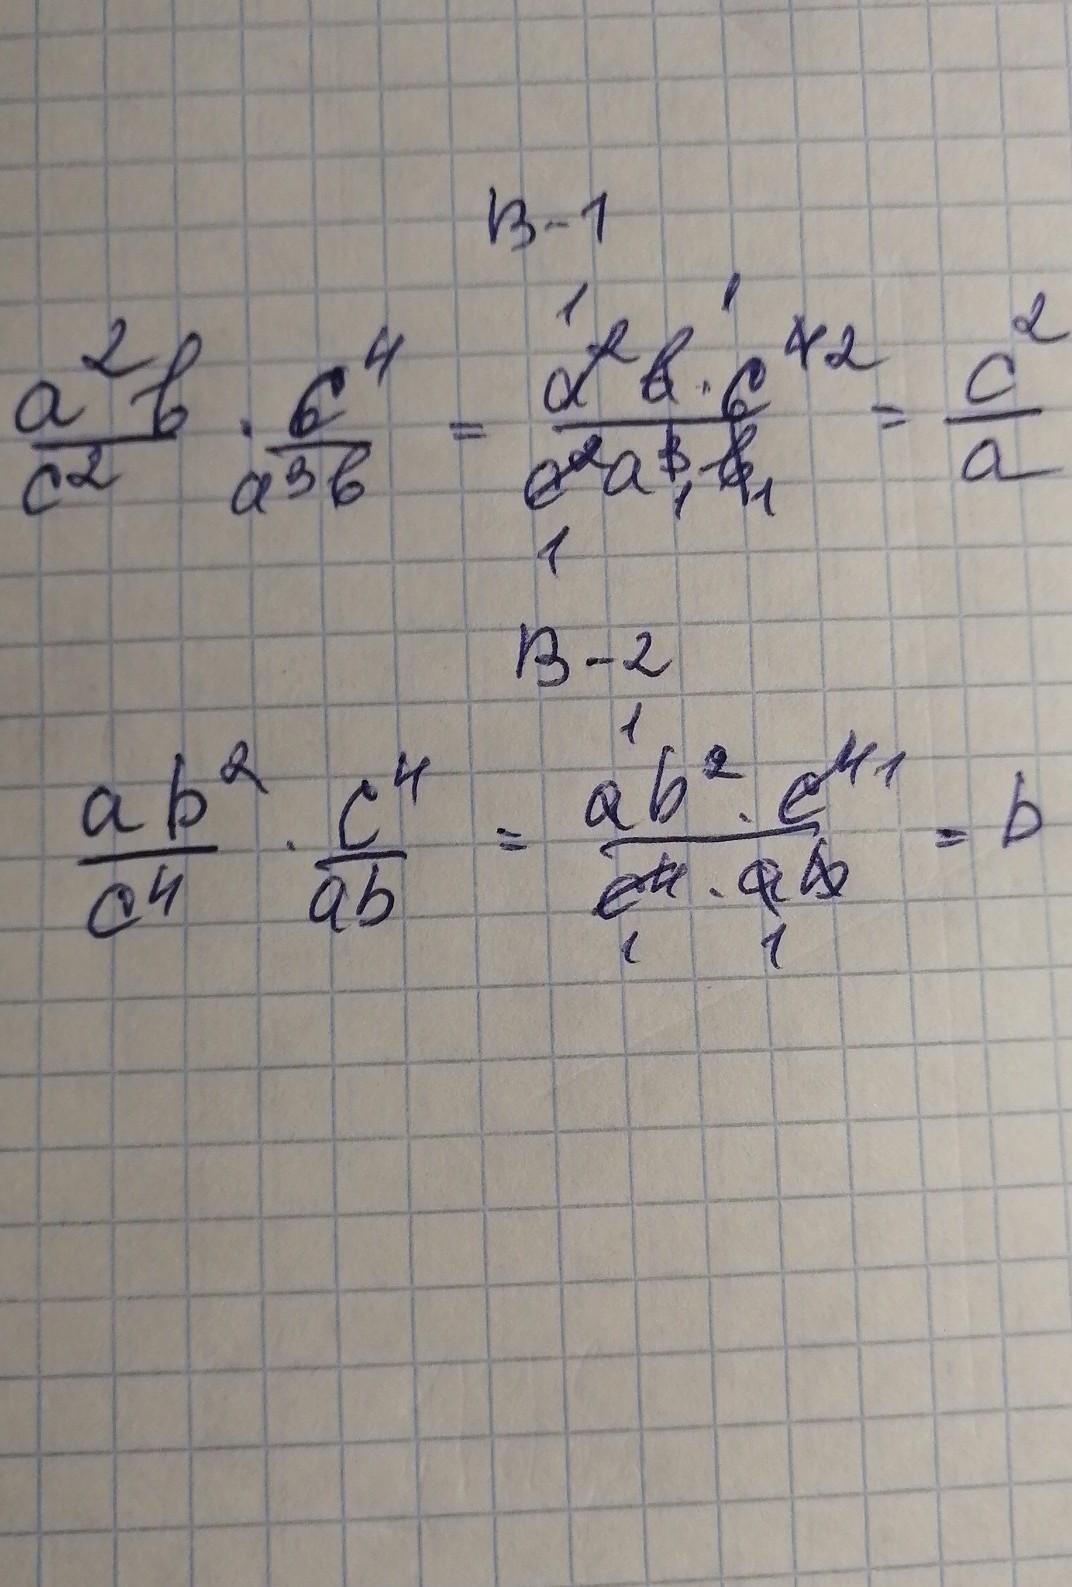 В-1
a²b/c² · c⁴/a³b = a²b · c⁴/c²a³b = c²/a
В-2
ab²/c⁴ · c⁴/ab = ab² · c⁴/c⁴ · ab = b